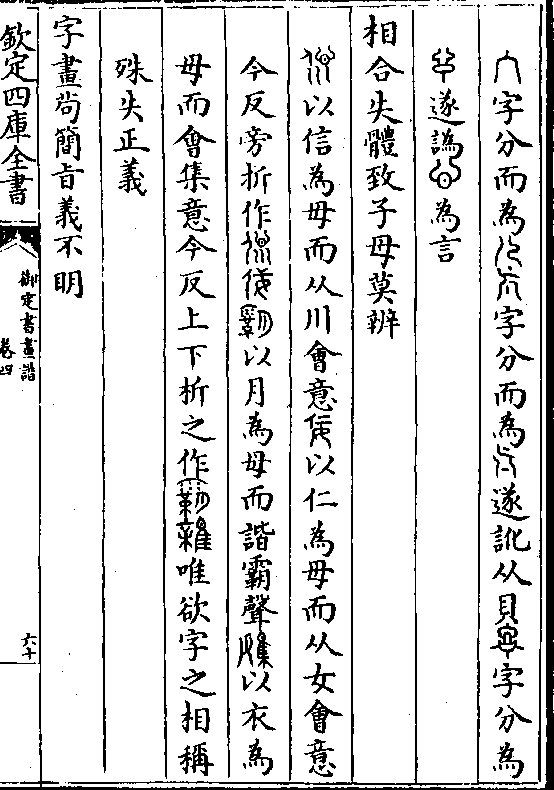 字分而為字分而為遂訛从貝字分為
遂譌為言
相合失體致子母莫辨
以信為母而从川會意以仁為母而从女會意
今反旁折作以月為母而諧霸聲以衣為
母而會集意今反上下折之作唯欲字之相稱
殊失正義
字畫尚簡旨義不明
欽定四庫全書
御定書畫譜
卷四
六十